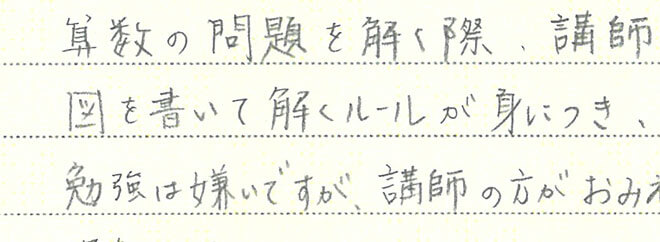 算数の問題を解く際、講師
図を書いて解くルールが身につき、
勉強は嫌いですが、講師の方がおみ